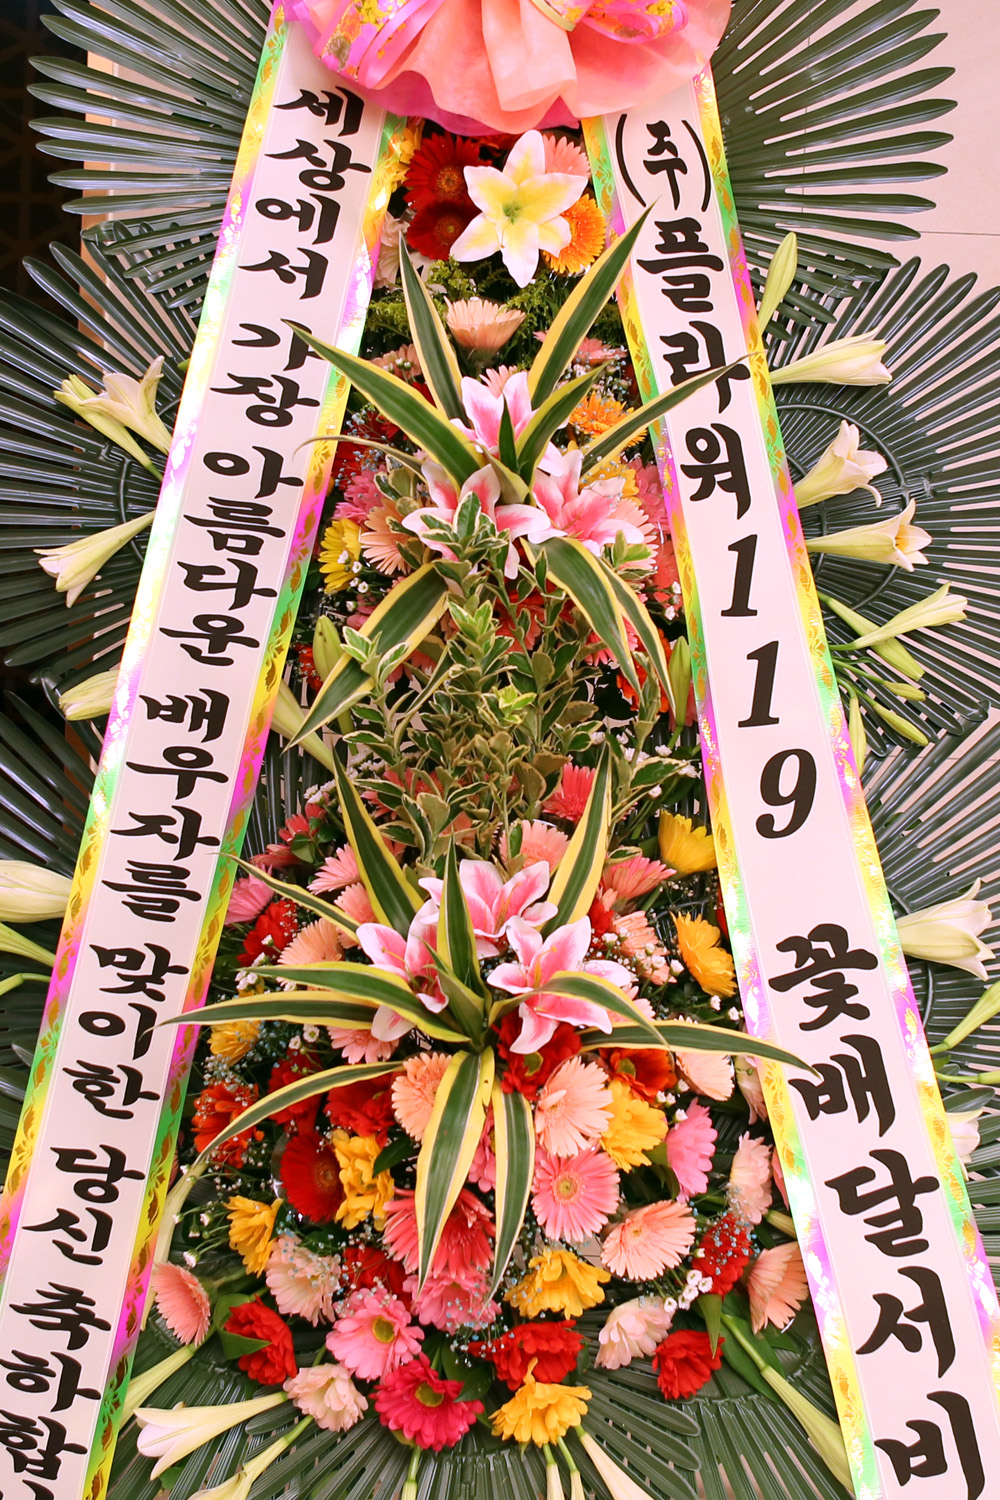 세상에서 가장 아름다운 배우자를 맞이한 당신 축하합
(주)플라워119 꽃배달서비